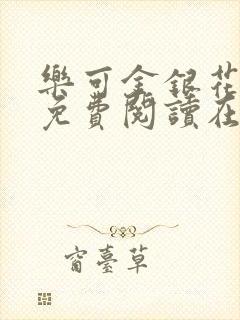 樂可金銀花
免費閱讀在
窗臺草